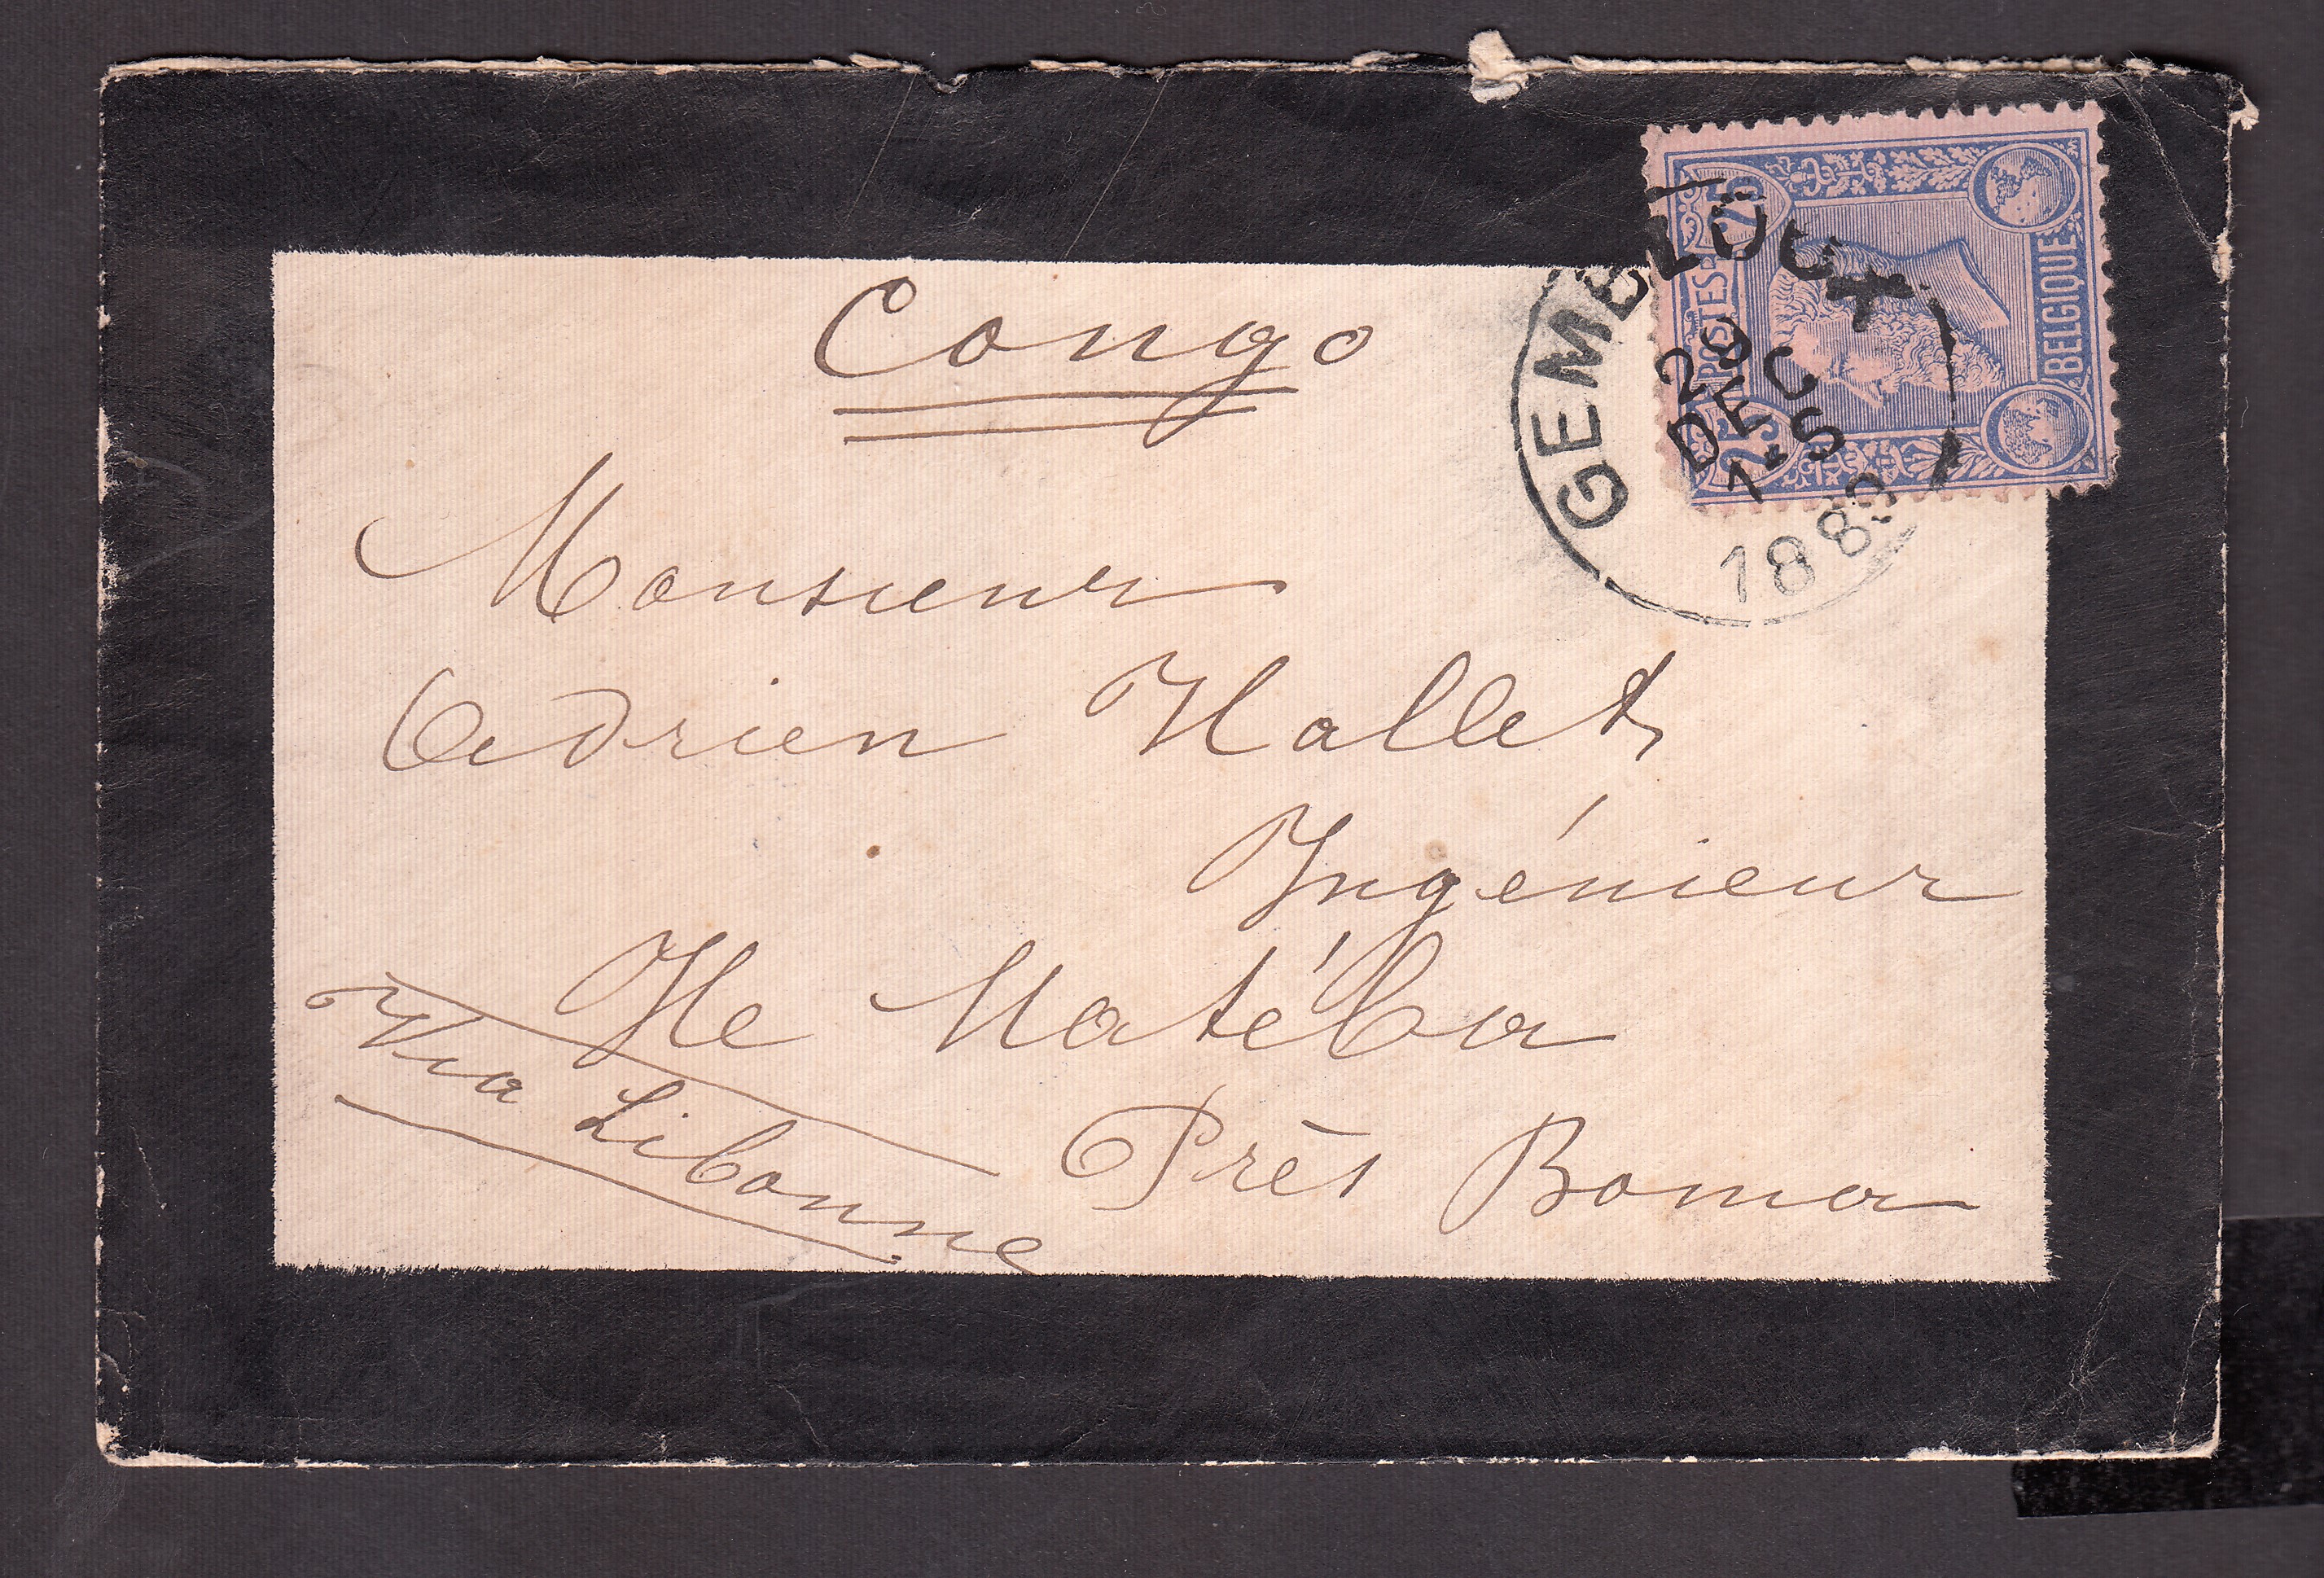 Congo
Monsieur
Adrien Hallet
Ingénieur
Ile Matéba
Près Boma
Via Libonne
GEMBLOUX
29
DEC
1-S
1889
POSTES
25
25
BELGIQUE